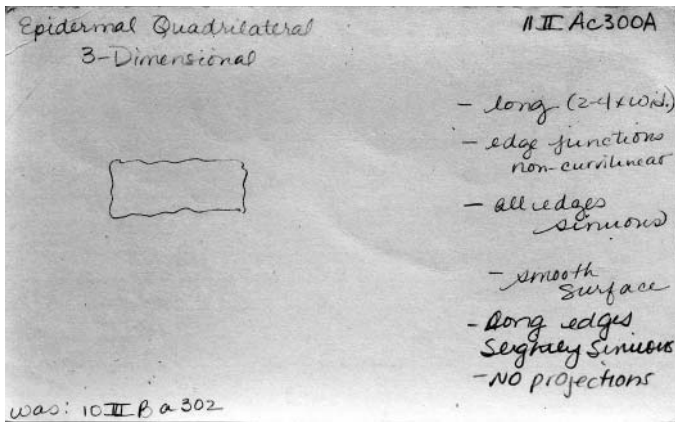 Epidermal Quadrilateral
3-Dimensional
11 II Ac300A
- long (2-4 x wid.)
- edge junctions
non-curvilinear
- all edges
sinuous
- smooth
surface
- Long edges
Slightly Sinuous
- NO projections
was: 10 II B a 302